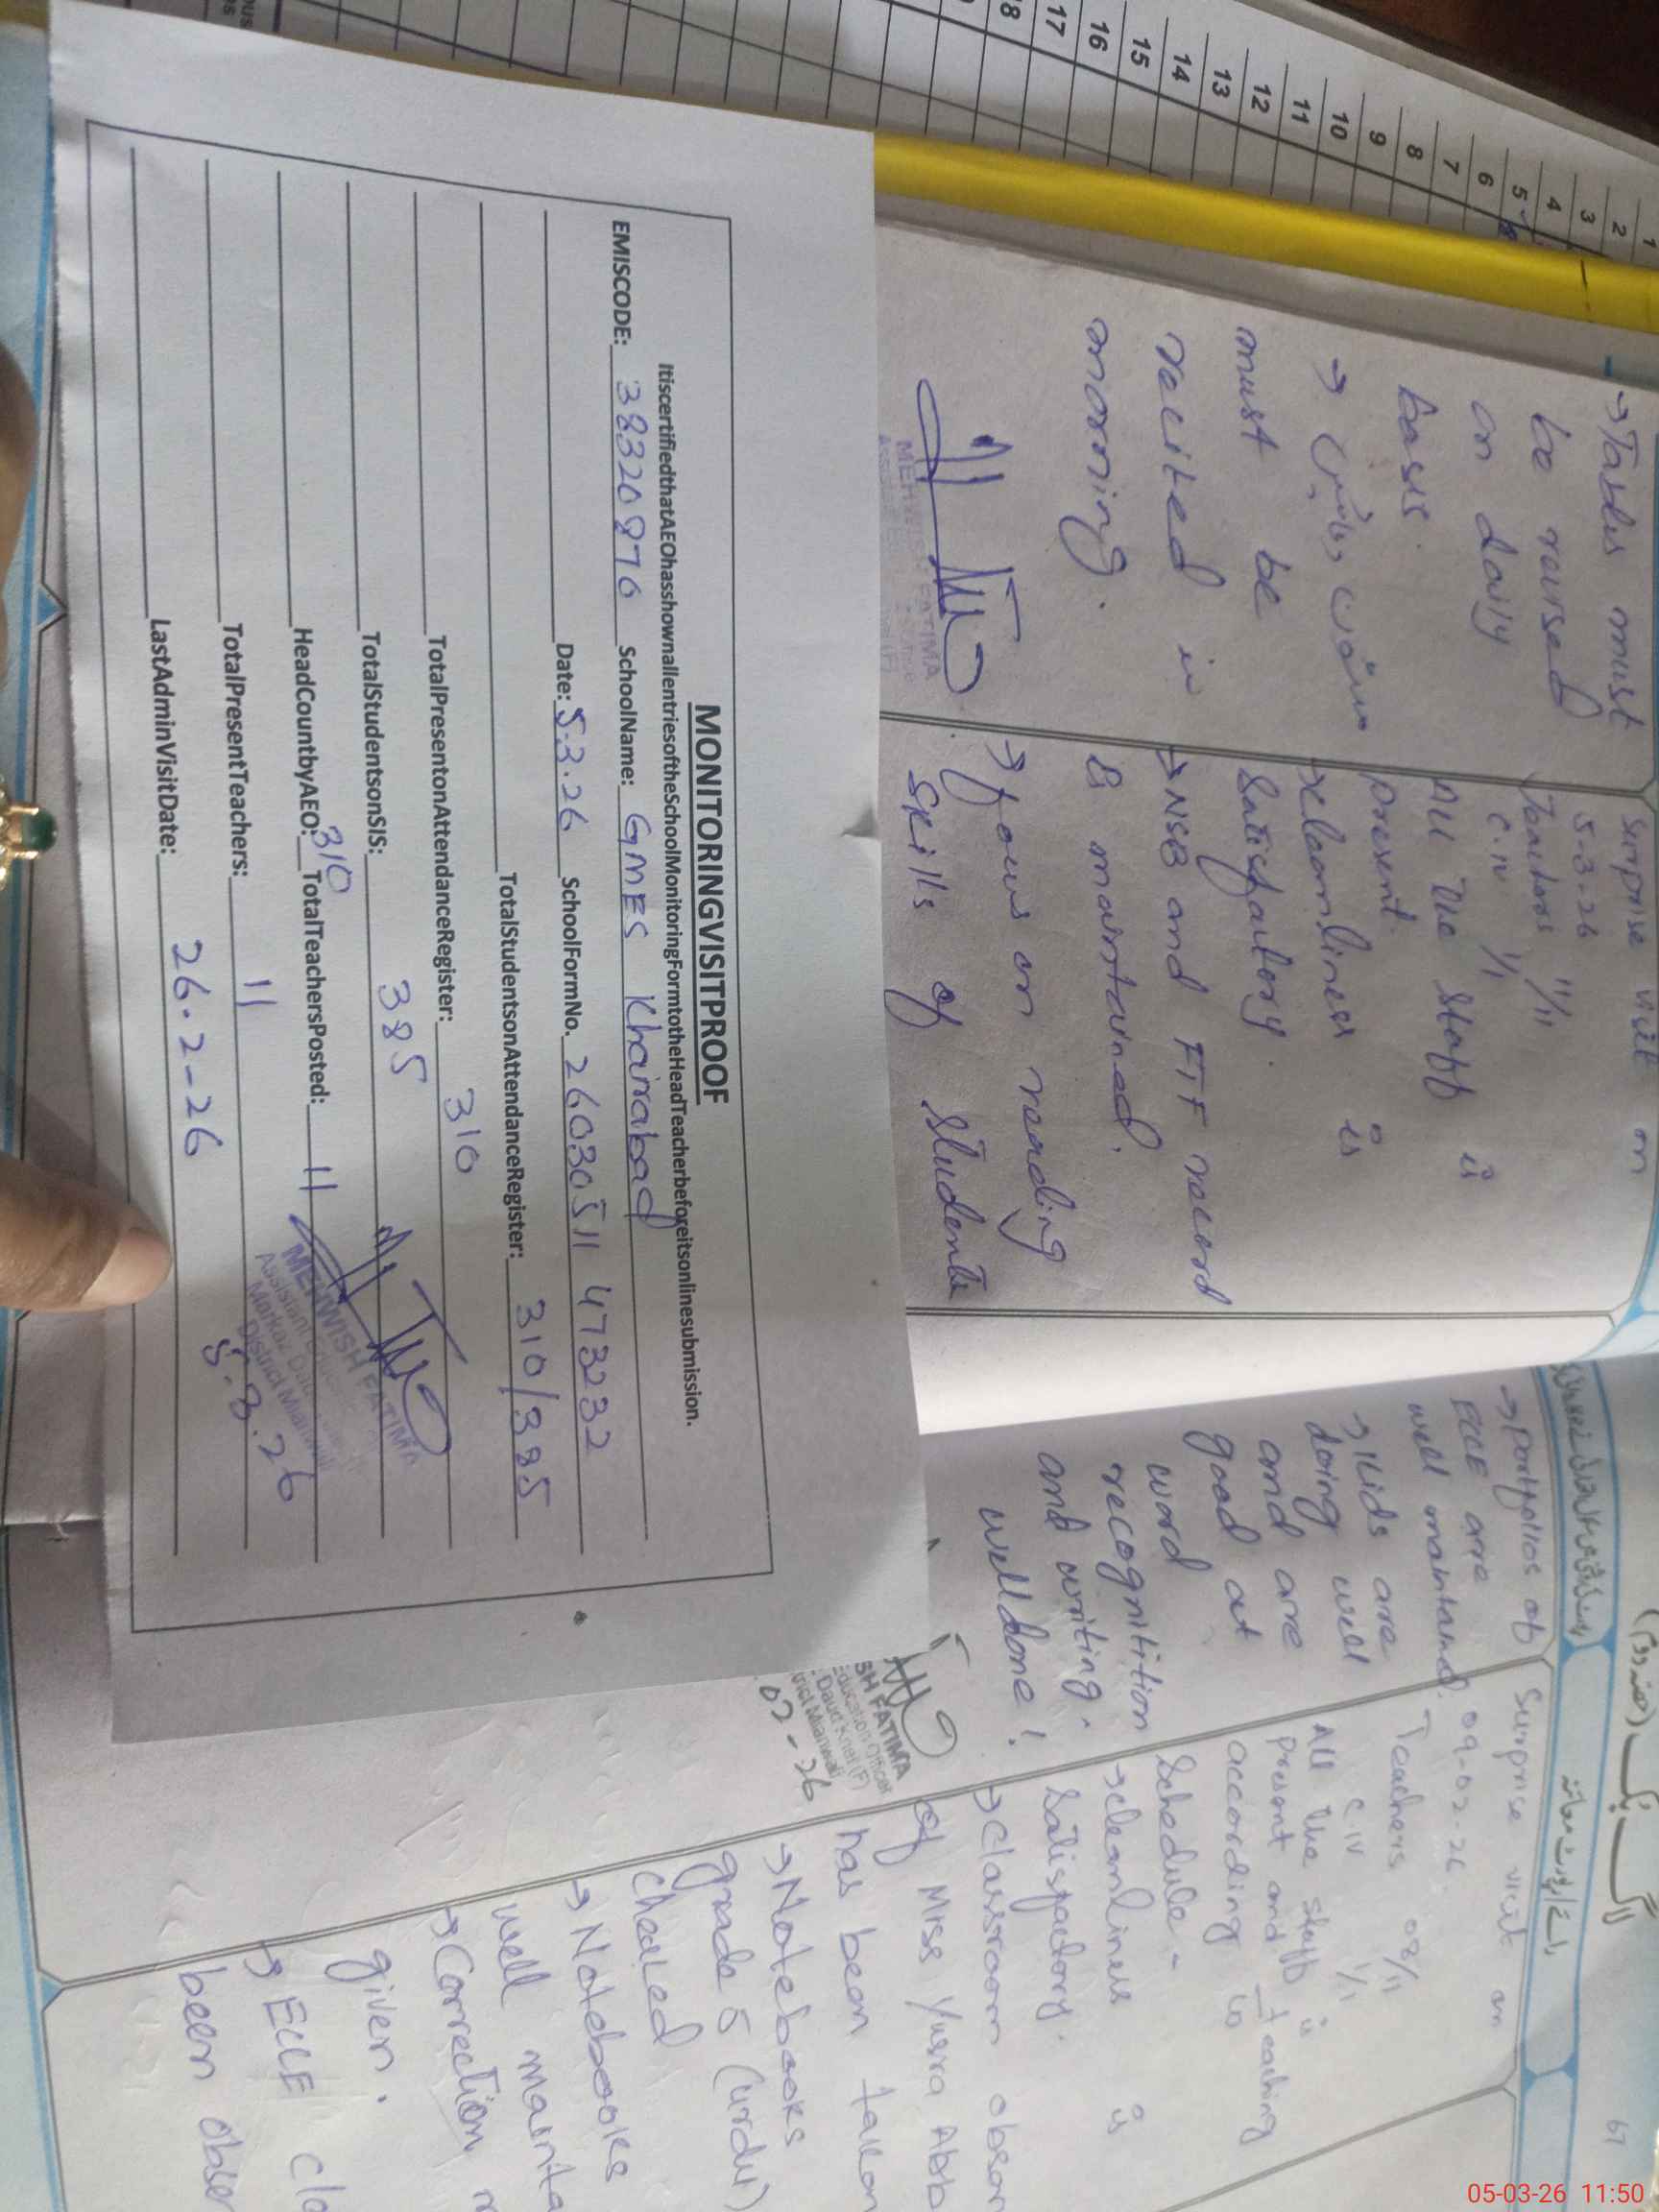 MONITORINGVISITPROOF
ItiscertifiedthatAEOhasshownallentriesoftheSchoolMonitoringFormtotheHeadTeacherbeforeitsonlinesubmission.
EMISCODE: 38320876 SchoolName: GMES Khairabad
Date: 5.3.26 SchoolFormNo. 26030511 47323
TotalStudentsonAttendanceRegister: 310/385
TotalPresentonAttendanceRegister: 310
TotalStudentsonSIS: 385
HeadCountbyAEO: 310 TotalTeachersPosted: 11
TotalPresentTeachers: 11
LastAdminVisitDate: 26.2-26
MEHWISH FATIMA
District Mianwali
5.3.26
→Tables must
be revised
on daily
basis.
→
must be
recited in
morning.
FATIMA
surprise visit on
5-3-26
Teachers 11/11
C.IV 1/1
All the staff is
present.
→cleanliness is
satisfactory.
→NSB and FTF record
is maintained.
→focus on reading
skills of students
→portfolios of
ECCE are
well maintained.
→Kids are
doing well
and are
good at
word
recognitition
and writing.
welldone!
SH FATIMA
Education Officer
Daud Khel (F)
trict Mianwali
02-26
67
Surprise visit on
09-02-26.
Teachers 08/11
C.IV 1/1
All the staff is
present and teaching
according to
schedule-
→cleanliness is
satisfactory.
→classroom obser
of Miss Yusra Abb
has been taken
→Notebooks
grade 5 (urdu)
checked
→Notebooks
well mainta
→Correction
given.
→ECCE cla
been obser
1
2
3
4
5
6
7
8
9
10
11
12
13
14
15
16
17
18
05-03-26 11:50